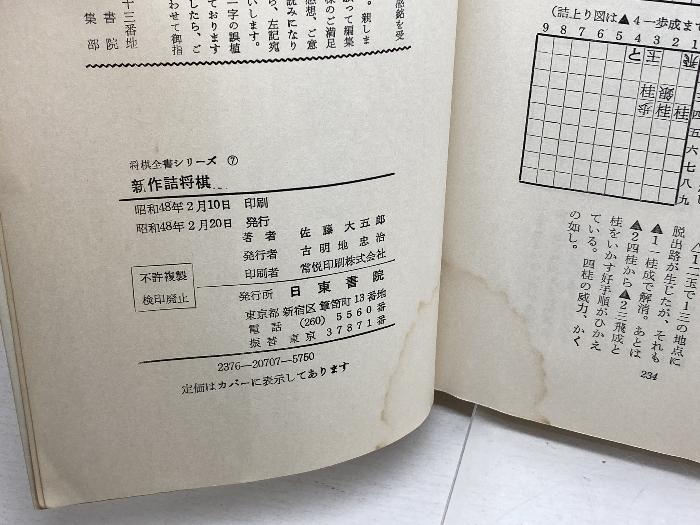 感銘を受
。親しま
様のご満足
感想、ご意
読みになり
ら、左記宛
いします。
一字の誤植
ております
したら、ご
わせて御指
十三番地
書院
集部
将棋全書シリーズ ⑦
新作詰将棋
昭和48年2月10日 印刷
昭和48年2月20日 発行
著者 佐藤大五郎
発行者 古明地忠治
印刷者 常悦印刷株式会社
不許複製
検印廃止
発行所 日東書院
東京都新宿区簞笥町13番地
電話 (260) 5560番
振替 東京 37871番
2376―20707―5750
定価はカバーに表示してあります
(詰上り図は▲4一歩成まで
9 8 7 6 5 4 3 2 1
と 玉 飛
桂 銀
歩 桂 桂
四
五
六
七
八
九
△1二玉で1三の地点に
脱出路が生じたが、それも
▲1一桂成で解消。あとは
▲2四桂から▲2三飛成と
桂をいかす好手順がひかえ
ている。四桂の威力、かく
の如し。
234